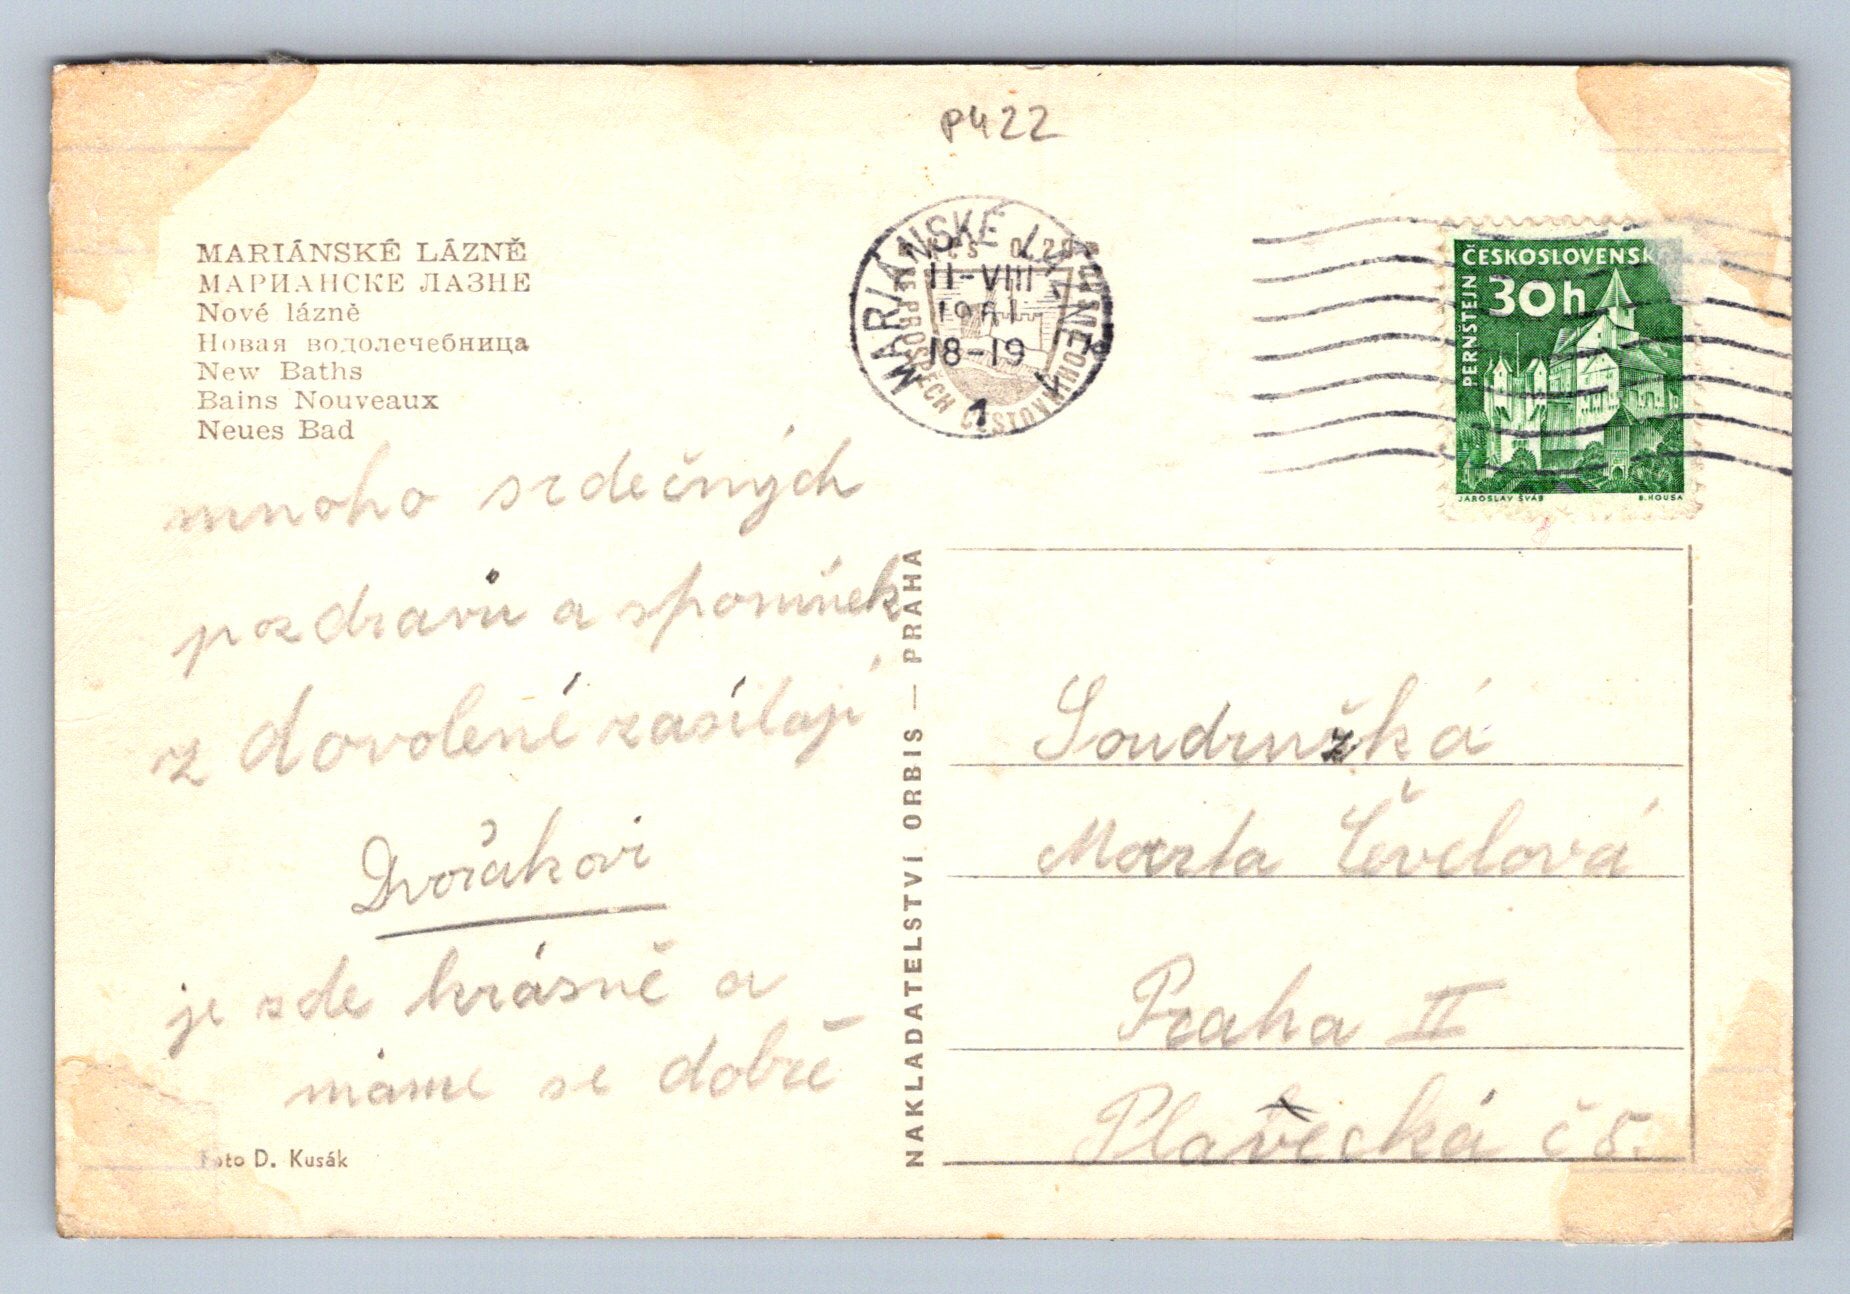 P422
MARIÁNSKÉ LÁZNĚ
МАРИАНСКЕ ЛАЗНЕ
Nové lázně
Новая водолечебница
New Baths
Bains Nouveaux
Neues Bad
MARIÁNSKÉ LÁZNĚ
11-VIII
1961
18-19
1
ČESKOSLOVENSK
30h
PERNŠTEJN
JAROSLAV ŠVÁB
B. HOUSA
mnoho srdečných
pozdravů a spomínek
z dovolené zasílají
Dvořákovi
je zde krásně a
máme se dobře
Foto D. Kusák
NAKLADATELSTVÍ ORBIS — PRAHA
Soudružká
Marta
Praha II
Plavecká č 5.